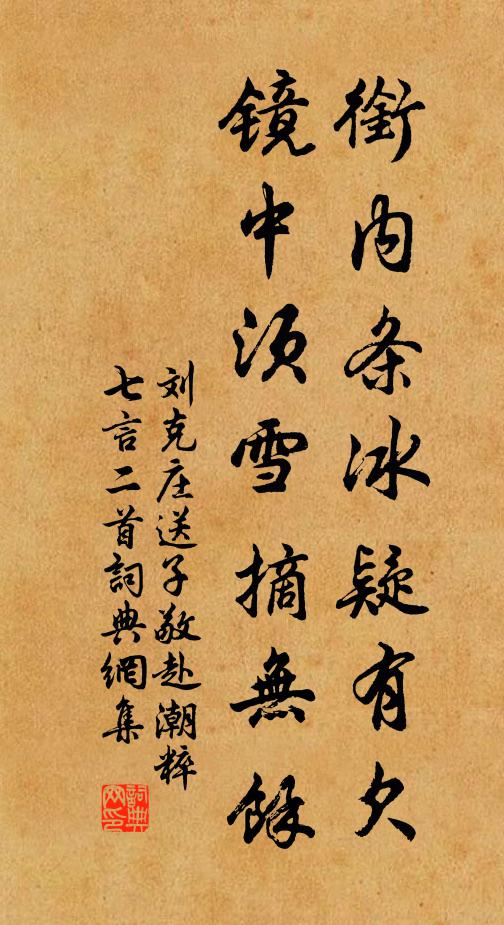 銜内条冰疑有欠
镜中须雪摘無餘
刘克庄送子敬赴潮粹
七言二首詞典網集
詞典網印